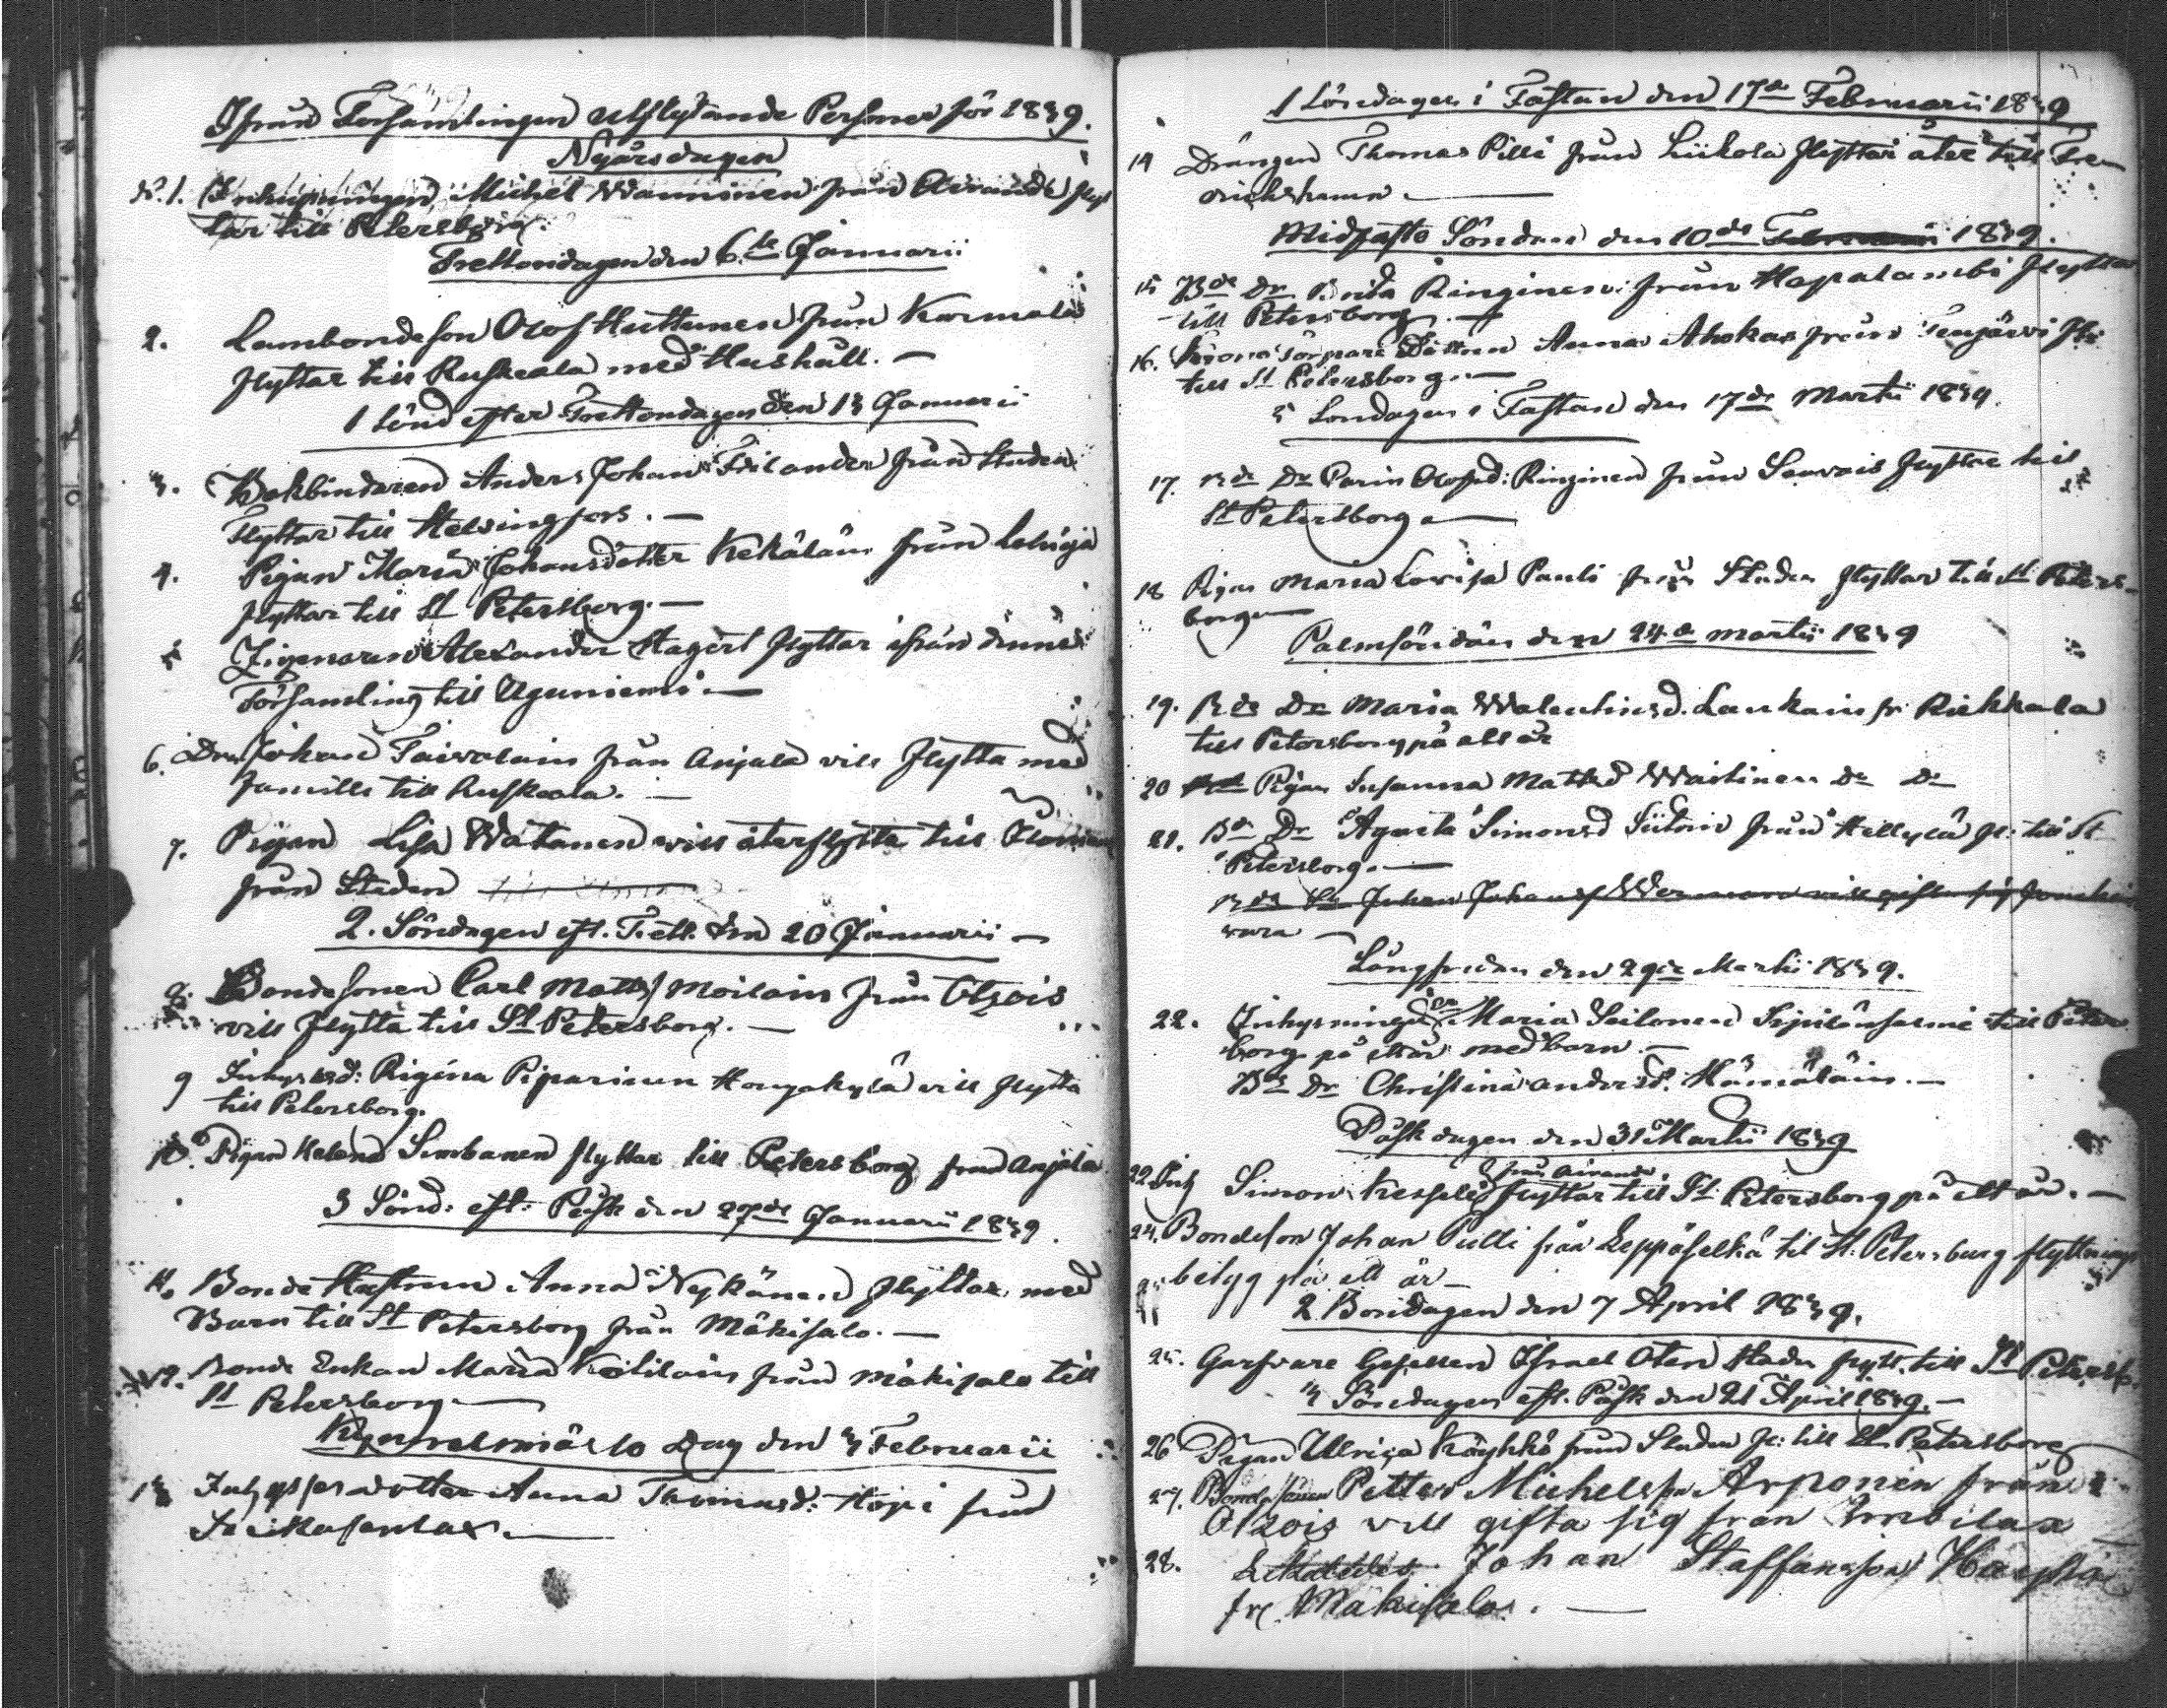 Ifrån Församlingen utflytande Personer för 1839.
Nyårsdagen
N. 1. Michel Wänninen från Airanda flyt
tar till Petersborg.
Trettondagen den 6te Januarii
2. Lambondeson Olof Huttunen från Karmala
flyttar till Ruskeala med Hushåll. —
1 Sönd efter Trettondagen den 13 Januarii
3. Bokbindaren Anders Johan Frilander från Staden
flyttar till Helsingfors. —
4. Pigan Maria Johansdotter Kekäläin från
flyttar till St Petersborg. —
5 Zigenaren Alexander Hagert flyttar ifrån denne
Församling till Uguniemi. —
6. Dr. Johan Taivalain från Anjala vill flytta med
famille till Ruskeala. —
7. Pigan Lisa Wätänen vill återflytta till
från Staden
2. Söndagen eft. Trett. den 20 Januarii —
8. Bondesonen Carl Matts Moilain från Otsois
vill flytta till St Petersborg. —
9 Inhys Rigina Piparinen Honyakylä vill flytta
till Petersborg.
10. Pigan Helena Simbanen flyttar till Petersborg från Anjala
3 Sönd: eft: Påsk den 27de Januarii 1839.
11. Bonde Hustrun Anna Nykänen flyttar med
Barn till St Petersborg från Mäkisalo. —
12. Bonde Enkan Maria Koitilain från Mäkisalo till
St Petersborg —
Kynnelsmässo Dag den 3 Februarii
13 Inhysesdotter Anna Thomasd: Hopi från
1 Söndagen i Fastan den 17de Februarii 1839
14 Drängen Thomas Pilli från Liikola flyttar åter till Fre-
drichshamn. —
Midfasto Söndan den 10de Februarii 1839.
15 Bde Dr. Brita Ringinen från Hapalambi flyttar
till Petersborg. —
16. Anna Ahokas från
till St Petersborg. —
5 Söndagen i Fastan den 17de Martii 1839.
17. Bde Dr Carin Olofsd: Ringinen från Sawais flyttar till
St Petersborg —
18 Pigan Maria Lovisa Pauli från Staden flyttar till St Peters-
borg —
Palmsöndan den 24de Martii 1839
19. Bde Dr Maria Walentinsd. Laukain fr. Riekkala
till Petersborg på ett år
20 Pigan Susanna Mattsd Wäistinen Do Do
21. Bde Dr Agneta Simonsd Siitoin från Hellylä fl: till St
Petersborg. —
Bde Sn Johan Johans Wermanen vill gifta sig
wara —
Långfredan den 29de Martii 1839.
22. Inhysninge En Maria Seilonen till Peters
borg på ett år med barn. —
Bde Dr Christina Andersd. Hämäläin. —
Påskdagen den 31 Martii 1839
22. Inh Simon Kessele från Airanda flyttar till St Petersborg på ett år. —
24. Bondeson Johan Pulli från Leppäselkä til St. Petersburg flyttnings
betyg på ett år —
2 Böndagen den 7 April 1839.
25. Garfvare Gesellen Israel Oten Staden flytt. till St Petersb.
3 Söndagen eft. Påsk den 21 April 1839. —
26 Pigan Ulrica Käyhkö från Staden fl: till St Petersborg
27. Bondesonen Petter Michelsson Arponen från
Otsois vill gifta sig från Imbilax
28. Johan Staffansson
fr. Mäkisalo. —